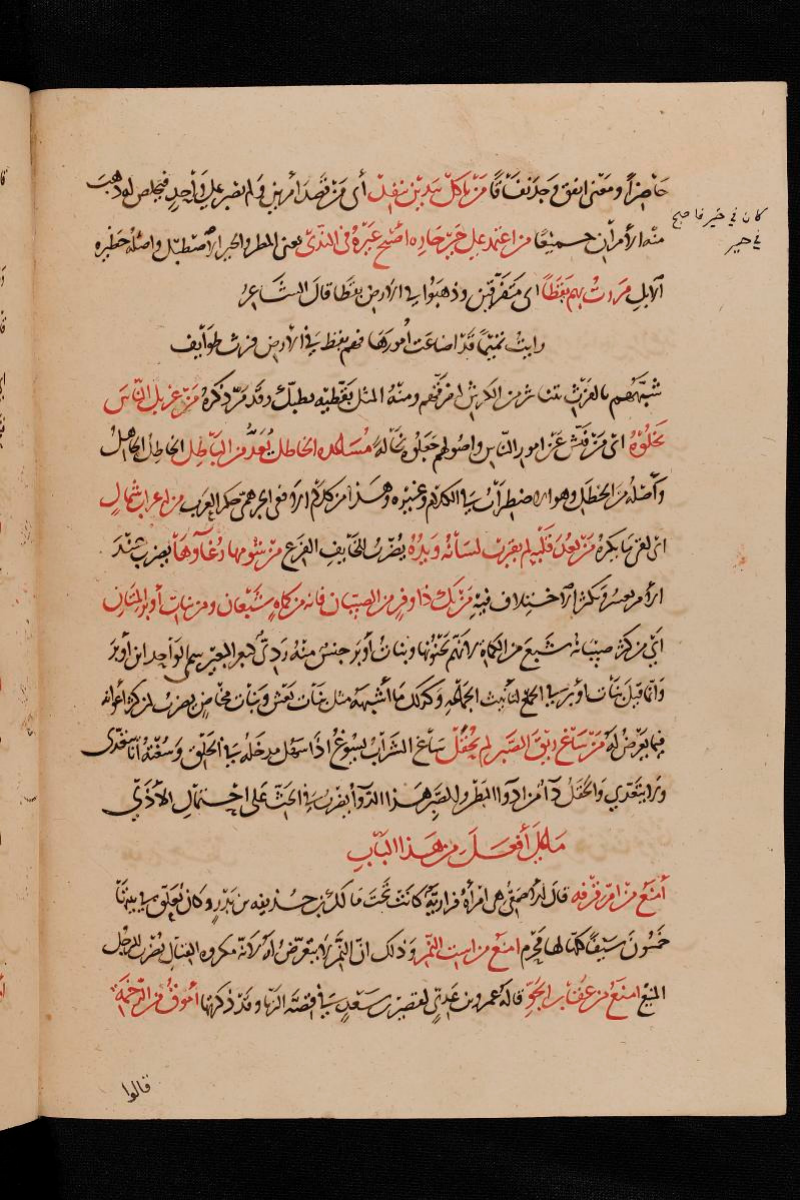 حاضراً ومعنى انفق وجد نفاقًا من ياكل بيدين ينفد أي من قصد أمرين ولم يصبر على واحدٍ فيخلص له ذهب
كان في خير فاصبح
في حير
منه الأمران جميعًا من اعتمد على حير جاره اصبح عيره في الندى يعني المطر والحير الاصطبل واصله حظيرة
الابل مررت بهم بقطًا اي متفرقين وذهبوا في الارض بقطًا قال الشاعر
رايت تميمًا قد اضاعت أمورها فهم بقط في الأرض فرث طوايف
شبههم بالفرث يتناثر من الكرش لتفرقهم ومنه المثل بقطيه بطبك وقد مر ذكره من غربل الناس
نخلوه اي من فتش عن امور الناس واصولهم جعلوه نخالةً مساعده الخاطل يعد من الباطل الخاطل الجاهل
وأصله من الخطل وهو الاضطراب في الكلام وغيره وهذا من كلام الافعى الجرهمي حكم العرب
اي لقي ما يكره من بعد قلبه لم يقرب لسانه ويده يضرب للخايف الفزع من شومها رغاوها يضرب عند
الأمر يعسر ويكثر الاختلاف فيه من يك ذا وفرٍ من الصبيان فانه من كماةٍ شبعان ومن بنات أوبر المكان
اي من كثر صبيانه شبع من الكماة لانهم يجنونها وبنات أوبر جنس منه ردي كبعر البعير يسمى الواحد ابن أوبر
وانما قيل بنات اوبر في الجمع لتأنيث الجماعة وكذلك ما أشبهه مثل بنات نعش وبنات مخاض يضرب لمن كثر أعوانه
فيما يعرض له من ساغ ريق الصبر لم يحقل ساغ الشراب يسوغ اذا سهل مدخله في الحلق وسغته أنا يتعدى
ولا يتعدي والحقل دآء من ادوا البطن والصبر هذا الدوآ يضرب في الحث على احتمال الأذى
ما على أفعل من هذا الباب
أمنع من ام قرفه قال الاصمعي هي امرأة فزارية كانت تحت مالك بن حذيفه بن بدر وكان يعلق في بيتها
خمسون سيفًا كلها لها محرم امنع من است النمر وذلك انّ النمر لا يتعرض له لانه مكروه القتال يضرب للرجل
المنيع امنع من عقاب الجو قاله عمرو بن عدي لقصير بن سعد في قصة الزبا وقد ذكرتها أموق من الرخمة
قالوا